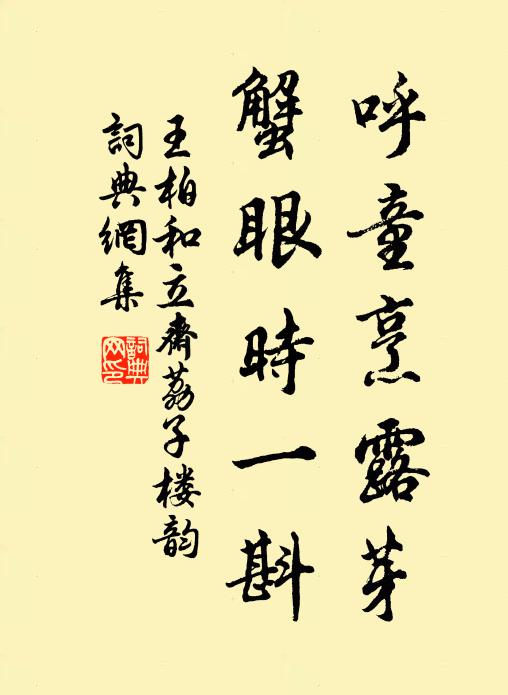 呼童烹露芽
蟹眼時一斟
王柏和立齋荔子楼韵
詞典網集
詞典网印